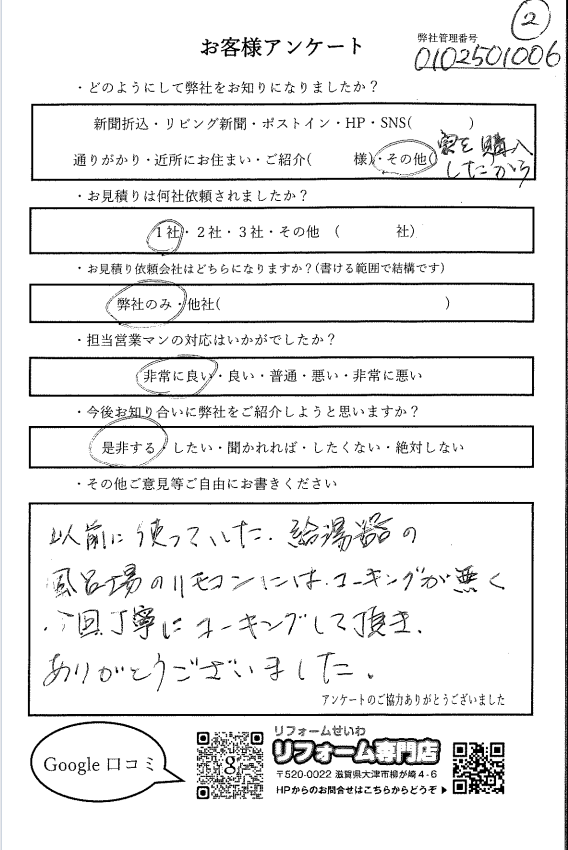 ②
お客様アンケート
弊社管理番号
0102501006
・どのようにして弊社をお知りになりましたか？
新聞折込・リビング新聞・ポストイン・HP・SNS(　　　　)
通りがかり・近所にお住まい・ご紹介(　　　様)・その他(家を購入
したから
・お見積りは何社依頼されましたか？
1社・2社・3社・その他　(　　　　社)
・お見積り依頼会社はどちらになりますか？(書ける範囲で結構です)
弊社のみ・他社(　　　　　　　　　　　　　)
・担当営業マンの対応はいかがでしたか？
非常に良い・良い・普通・悪い・非常に悪い
・今後お知り合いに弊社をご紹介しようと思いますか？
是非する・したい・聞かれれば・したくない・絶対しない
・その他ご意見等ご自由にお書きください
以前に使っていした、給湯器の
風呂場のリモコンには、コーキングが無く
今回丁寧にコーキングして頂き、
ありがとうございました。
アンケートのご協力ありがとうございました
Google 口コミ
g
リフォームせいわ
リフォーム専門店
〒520-0022 滋賀県大津市柳が崎4-6
HPからのお問合せはこちらからどうぞ▶